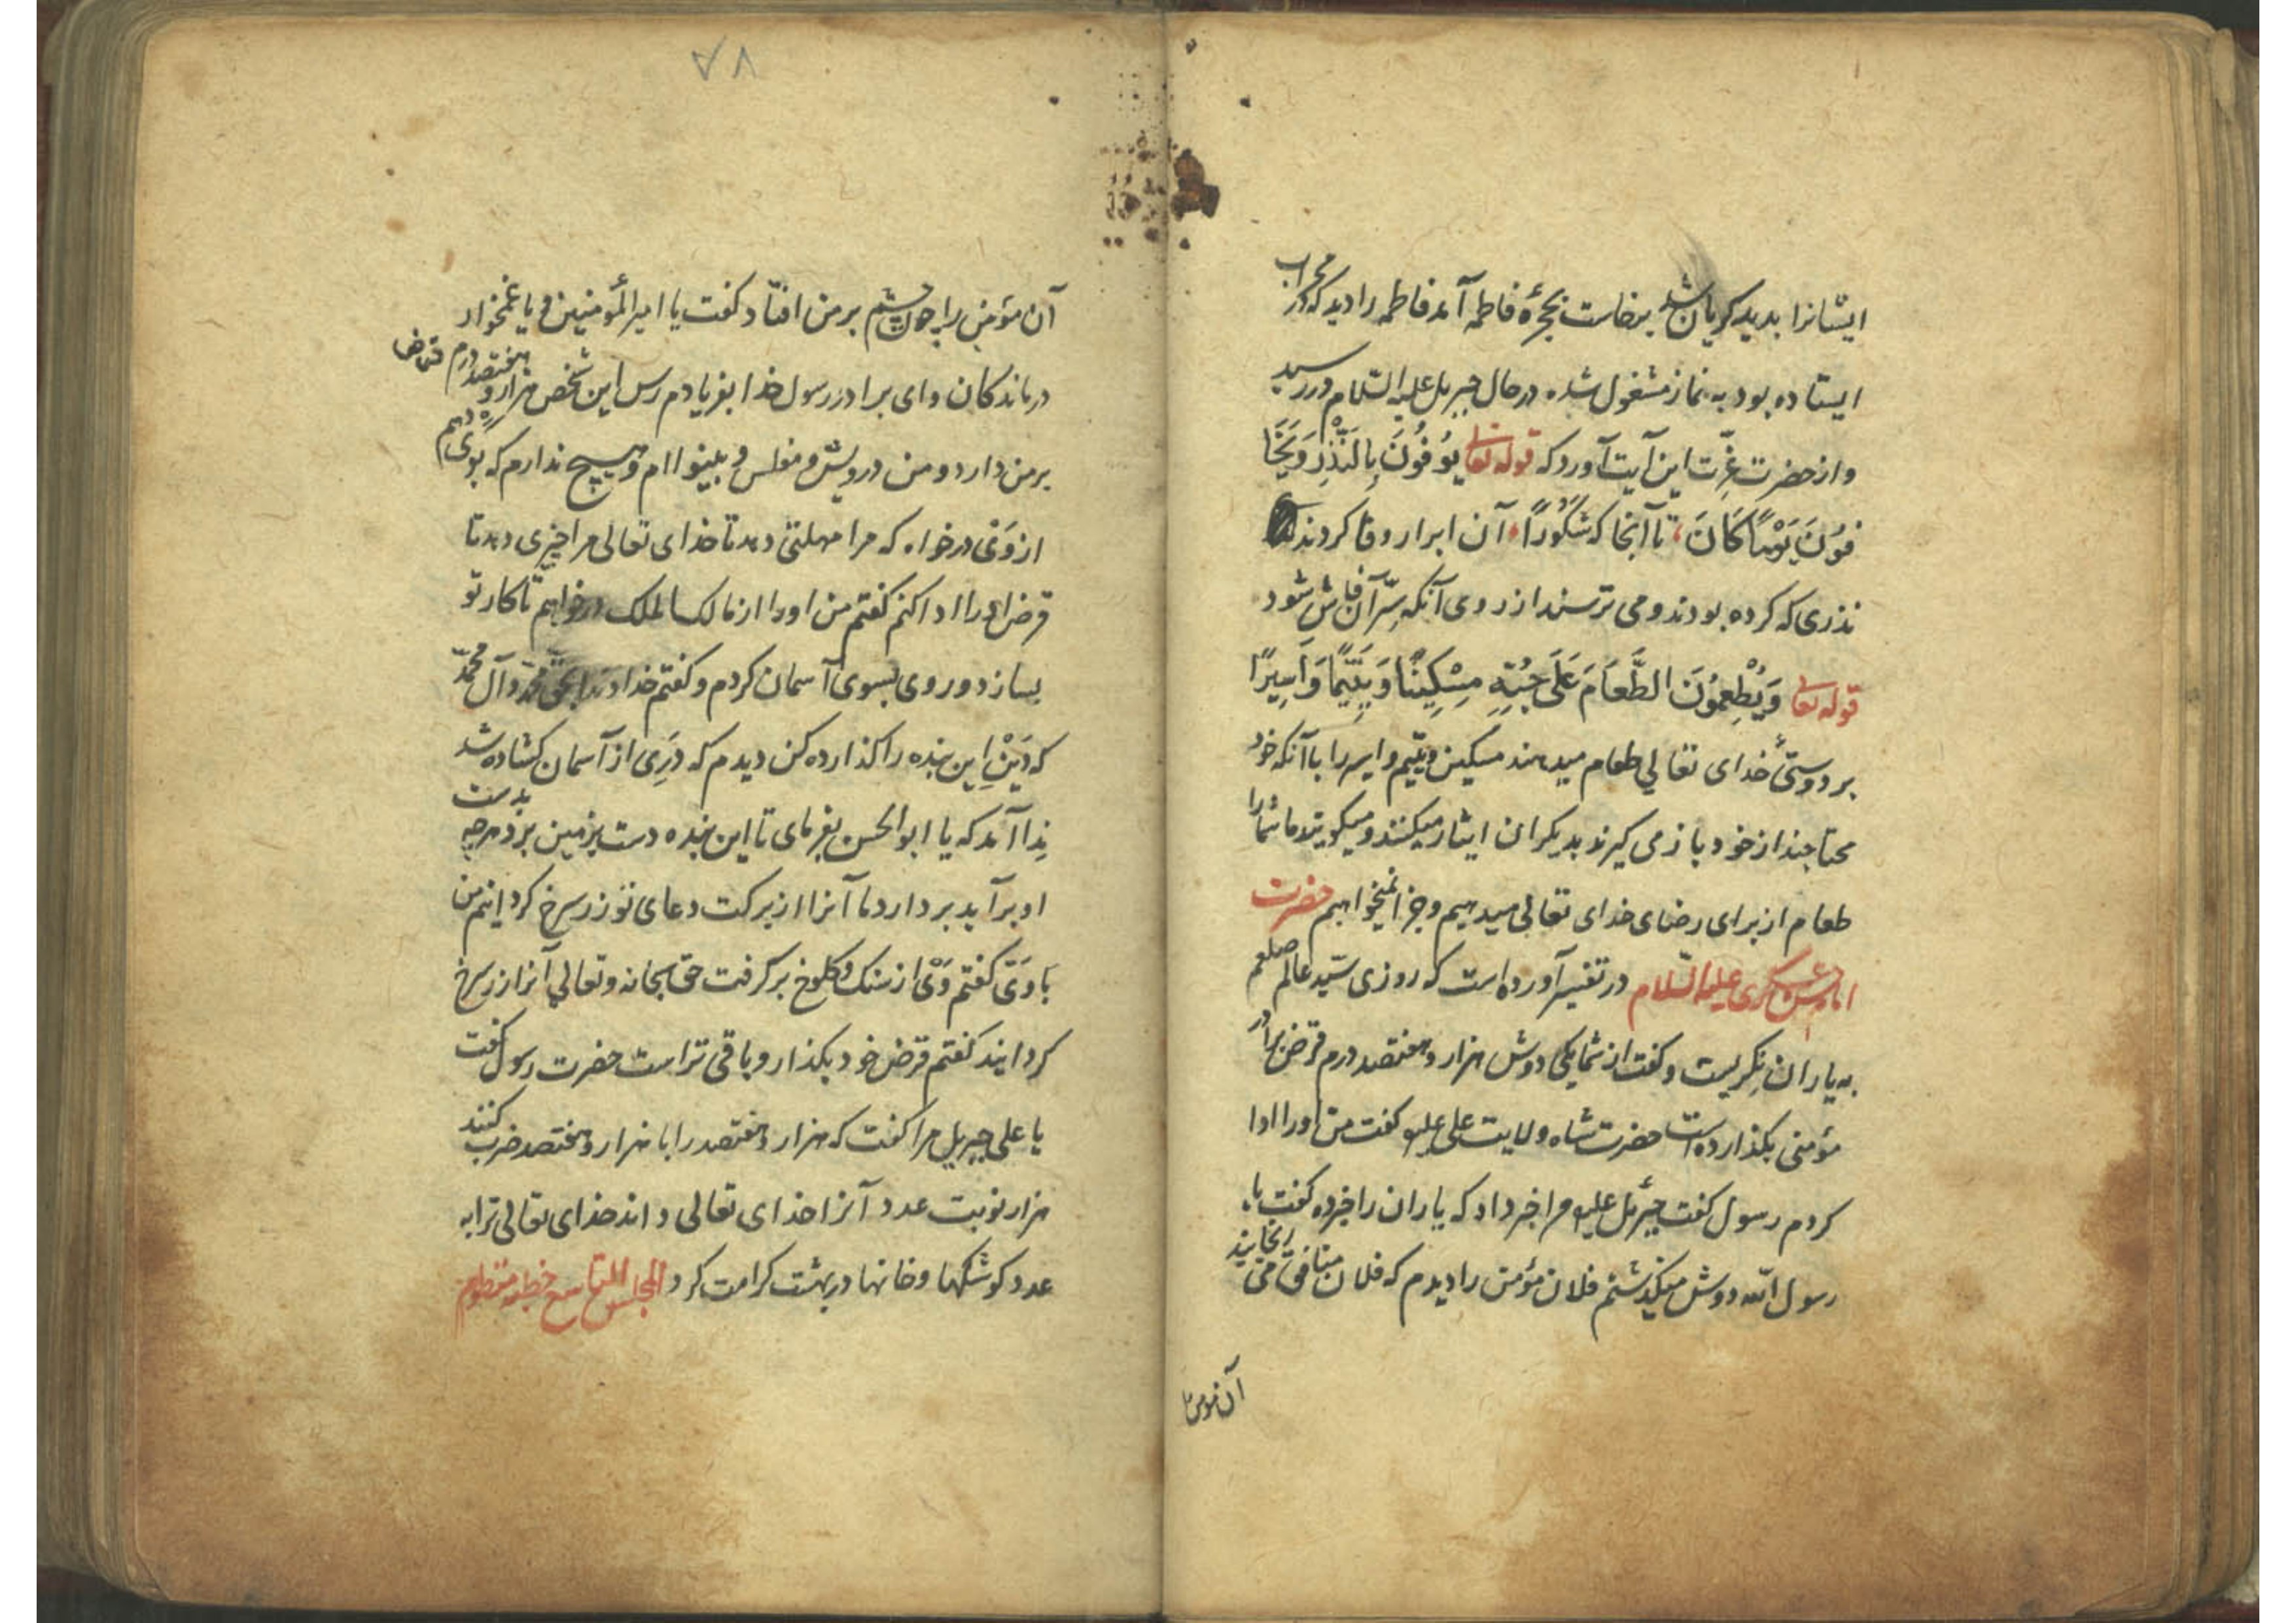 ایشانرا بدید کریان شد برخاست بحجرهٔ فاطمه آمد فاطمه را دید که در محراب
ایستاده بود به نماز مشغول شده در حال جبریل علیه السّلام در رسید
و از حضرت عزّت این آیت آورد که قوله تعا یُوفُونَ بِالنَّذْرِ وَیَخَا
فُونَ یَوْمًا کَانَ تا آنجا که شَکُورًا آن ابرار وفا کردند
نذری که کرده بودند و می ترسند از روی آنکه سِرّ آن فاش شود
قوله تعا وَیُطْعِمُونَ الطَّعَامَ عَلَی حُبِّهِ مِسْکِینًا وَیَتِیمًا وَاَسِیرًا
بر دوستیٔ خدای تعالی طعام میدهند مسکین و یتیم و اسیر را با آنکه خود
محتاجند از خود باز می کیرند بدیکران ایثار میکنند و میکویند ما شما را
طعام از برای رضای خدای تعالی میدهیم و جزا نمیخواهیم حضرت
امام حسن عسکری علیه السّلام در تفسیر آورده است که روزی سیّد عالم صلعم
به یاران نکریست و کفت از شما یکی دوش هزار و هفتصد درم قرض برادر
مؤمنی بکذارده است حضرت شاه ولایت علی علیه کفت من اورا ادا
کردم رسول کفت جبرئیل علیه مرا خبر داد که یاران را خبر ده کفت یا
رسول الله دوش میکذشتم فلان مؤمن را دیدم که فلان منافق می رنجانید
آن مومن را
۷۸
آن مؤمن را چون چشم بر من افتاد کفت یا امیر المؤمنین و یا غمخوار
درماندکان و ای برادر رسول خدا بفریادم رس این شخص هزار و هفتصد درم قرض
بر من دارد و من درویش و مفلس و بینوا ام و هیچ ندارم که بوی دهم
از وَی درخواه که مرا مهلتی دهد تا خدای تعالی مرا چیزی دهد تا
قرض اورا ادا کنم کفتم من اورا از مالک الملک درخواهم تا کار تو
بسازد و روی بسوی آسمان کردم و کفتم خداوندا بحق محمّد و آل محمّد
که دَیْنِ این بنده را کذارده کن دیدم که دَرِی از آسمان کشاده شد
نِدا آمد که یا ابو الحسن بفرمای تا این بنده دست بزمین برد هرچه بدست
او برآید بردارد ما آنرا از برکت دعای تو زر سرخ کردانیم من
با وَی کفتم وَی از سنک و کلوخ بر کرفت حق سبحانه و تعالی آنرا زر سرخ
کردانید کفتم قرض خود بکذار و باقی تراست حضرت رسول کفت
یا علی جبریل مرا کفت که هزار و هفتصد را با هزار و هفتصد ضرب کنند
هزار نوبت عدد آنرا خدای تعالی داند خدای تعالی ترا به
عدد کوشکها و خانها در بهشت کرامت کرد المجلس التاسع خطبه